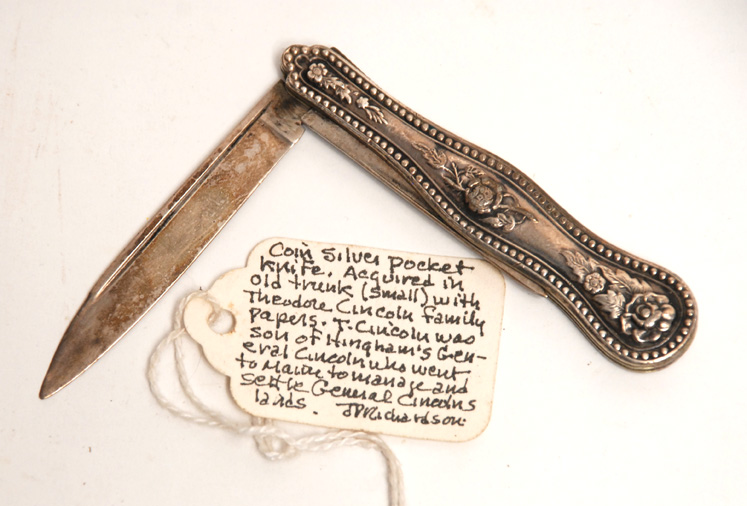 Coin silver pocket
knife. Acquired in
old trunk (small) with
Theodore Lincoln family
Papers. T. Lincoln was
son of Hingham's Gen-
eral Lincoln who went
to Maine to manage and
settle General Lincolns
lands. JPRichardson.